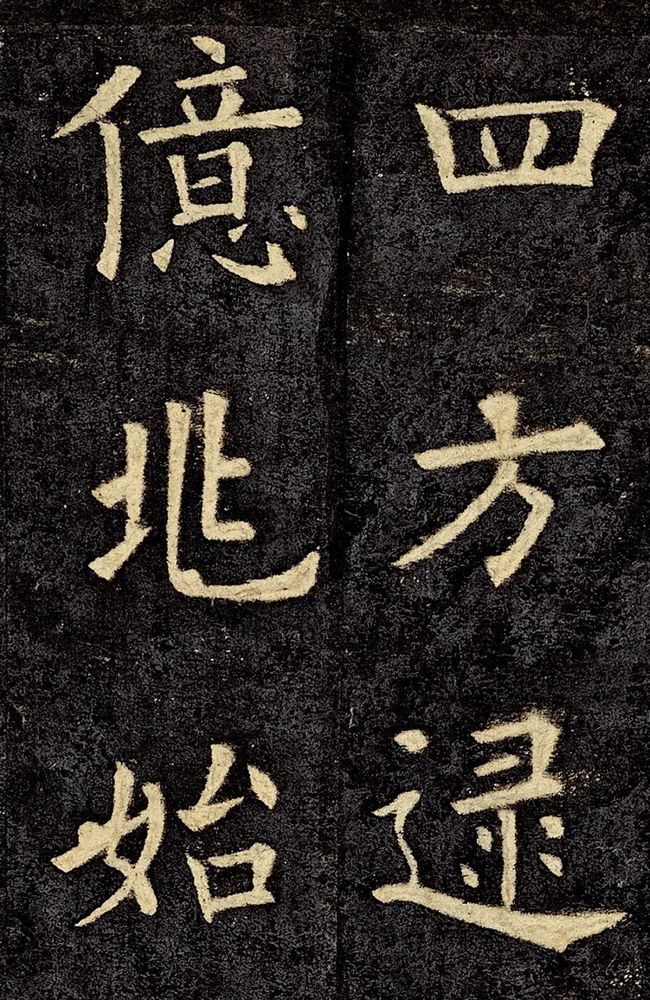 四方逮
億兆始